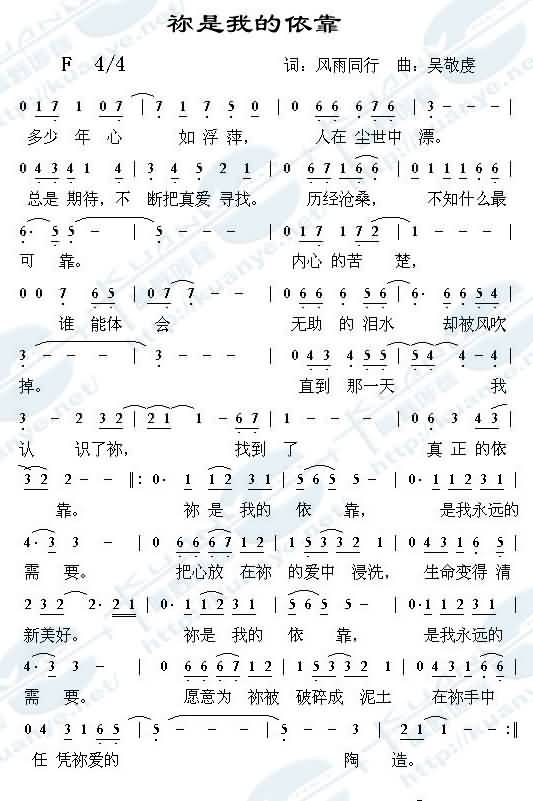 祢是我的依靠
F 4/4 词：风雨同行 曲：吴敬虔
0 1 7 1 0 7 | 7 - - - | 1 7 5 0 | 0 6 6 6 7 6 | 3 - - - |
多少 年 心 如 浮 萍， 人在 尘世中 漂。
0 4 3 4 1 4 | 4 3 4 5 2 1 | 0 6 7 1 6 6 | 0 1 1 1 6 6 |
总是 期待，不 断把真爱 寻找。 历经沧桑， 不知什么最
6· 5 5 - | 5 - - - | 0 1 7 1 7 2 | 1 - - - |
可 靠。 内心 的 苦 楚，
0 0 7 6 5 | 0 7 7 - - | 0 6 6 6 5 6 | 6· 6 6 5 4 |
谁 能体 会 无助 的 泪水 却被风吹
3 - - - | 3 - - - | 0 4 3 4 5 5 | 5 4 4 - 4 |
掉。 直到 那一天 我
3 - 2 3 2 | 2 1 1 - 6 7 | 1 - - - | 0 6 3 4 3 |
认 识了祢， 找到 了 真 正 的依
3 2 2 - - ‖: 0· 1 1 2 3 1 | 5 3 3 - - | 0· 1 1 2 3 1 |
靠。 祢 是 我的 依 靠， 是我永远的
4· 3 3 - | 0 6 6 6 7 1 2 | 1 5 3 3 2 2 | 0 4 3 1 6 5 |
需 要。 把心放 在祢 的爱中 浸洗， 生命变得 清
2 3 2 2· 2 1 | 3 - - - | 0· 1 1 2 3 1 | 5 3 3 - - | 0· 1 1 2 3 1 |
新美好。 祢是 我的 依 靠， 是我永远的
4· 3 3 - | 0 6 6 6 7 1 2 | 1 5 3 3 2 2 | 0 4 3 1 6 6 |
需 要。 愿意为 祢被 破碎成 泥土 在祢手中
0 4 3 1 6 5 | 5 - - - | 5 - - 3 | 2 1 1 - - :‖
任 凭祢爱的 陶 造。